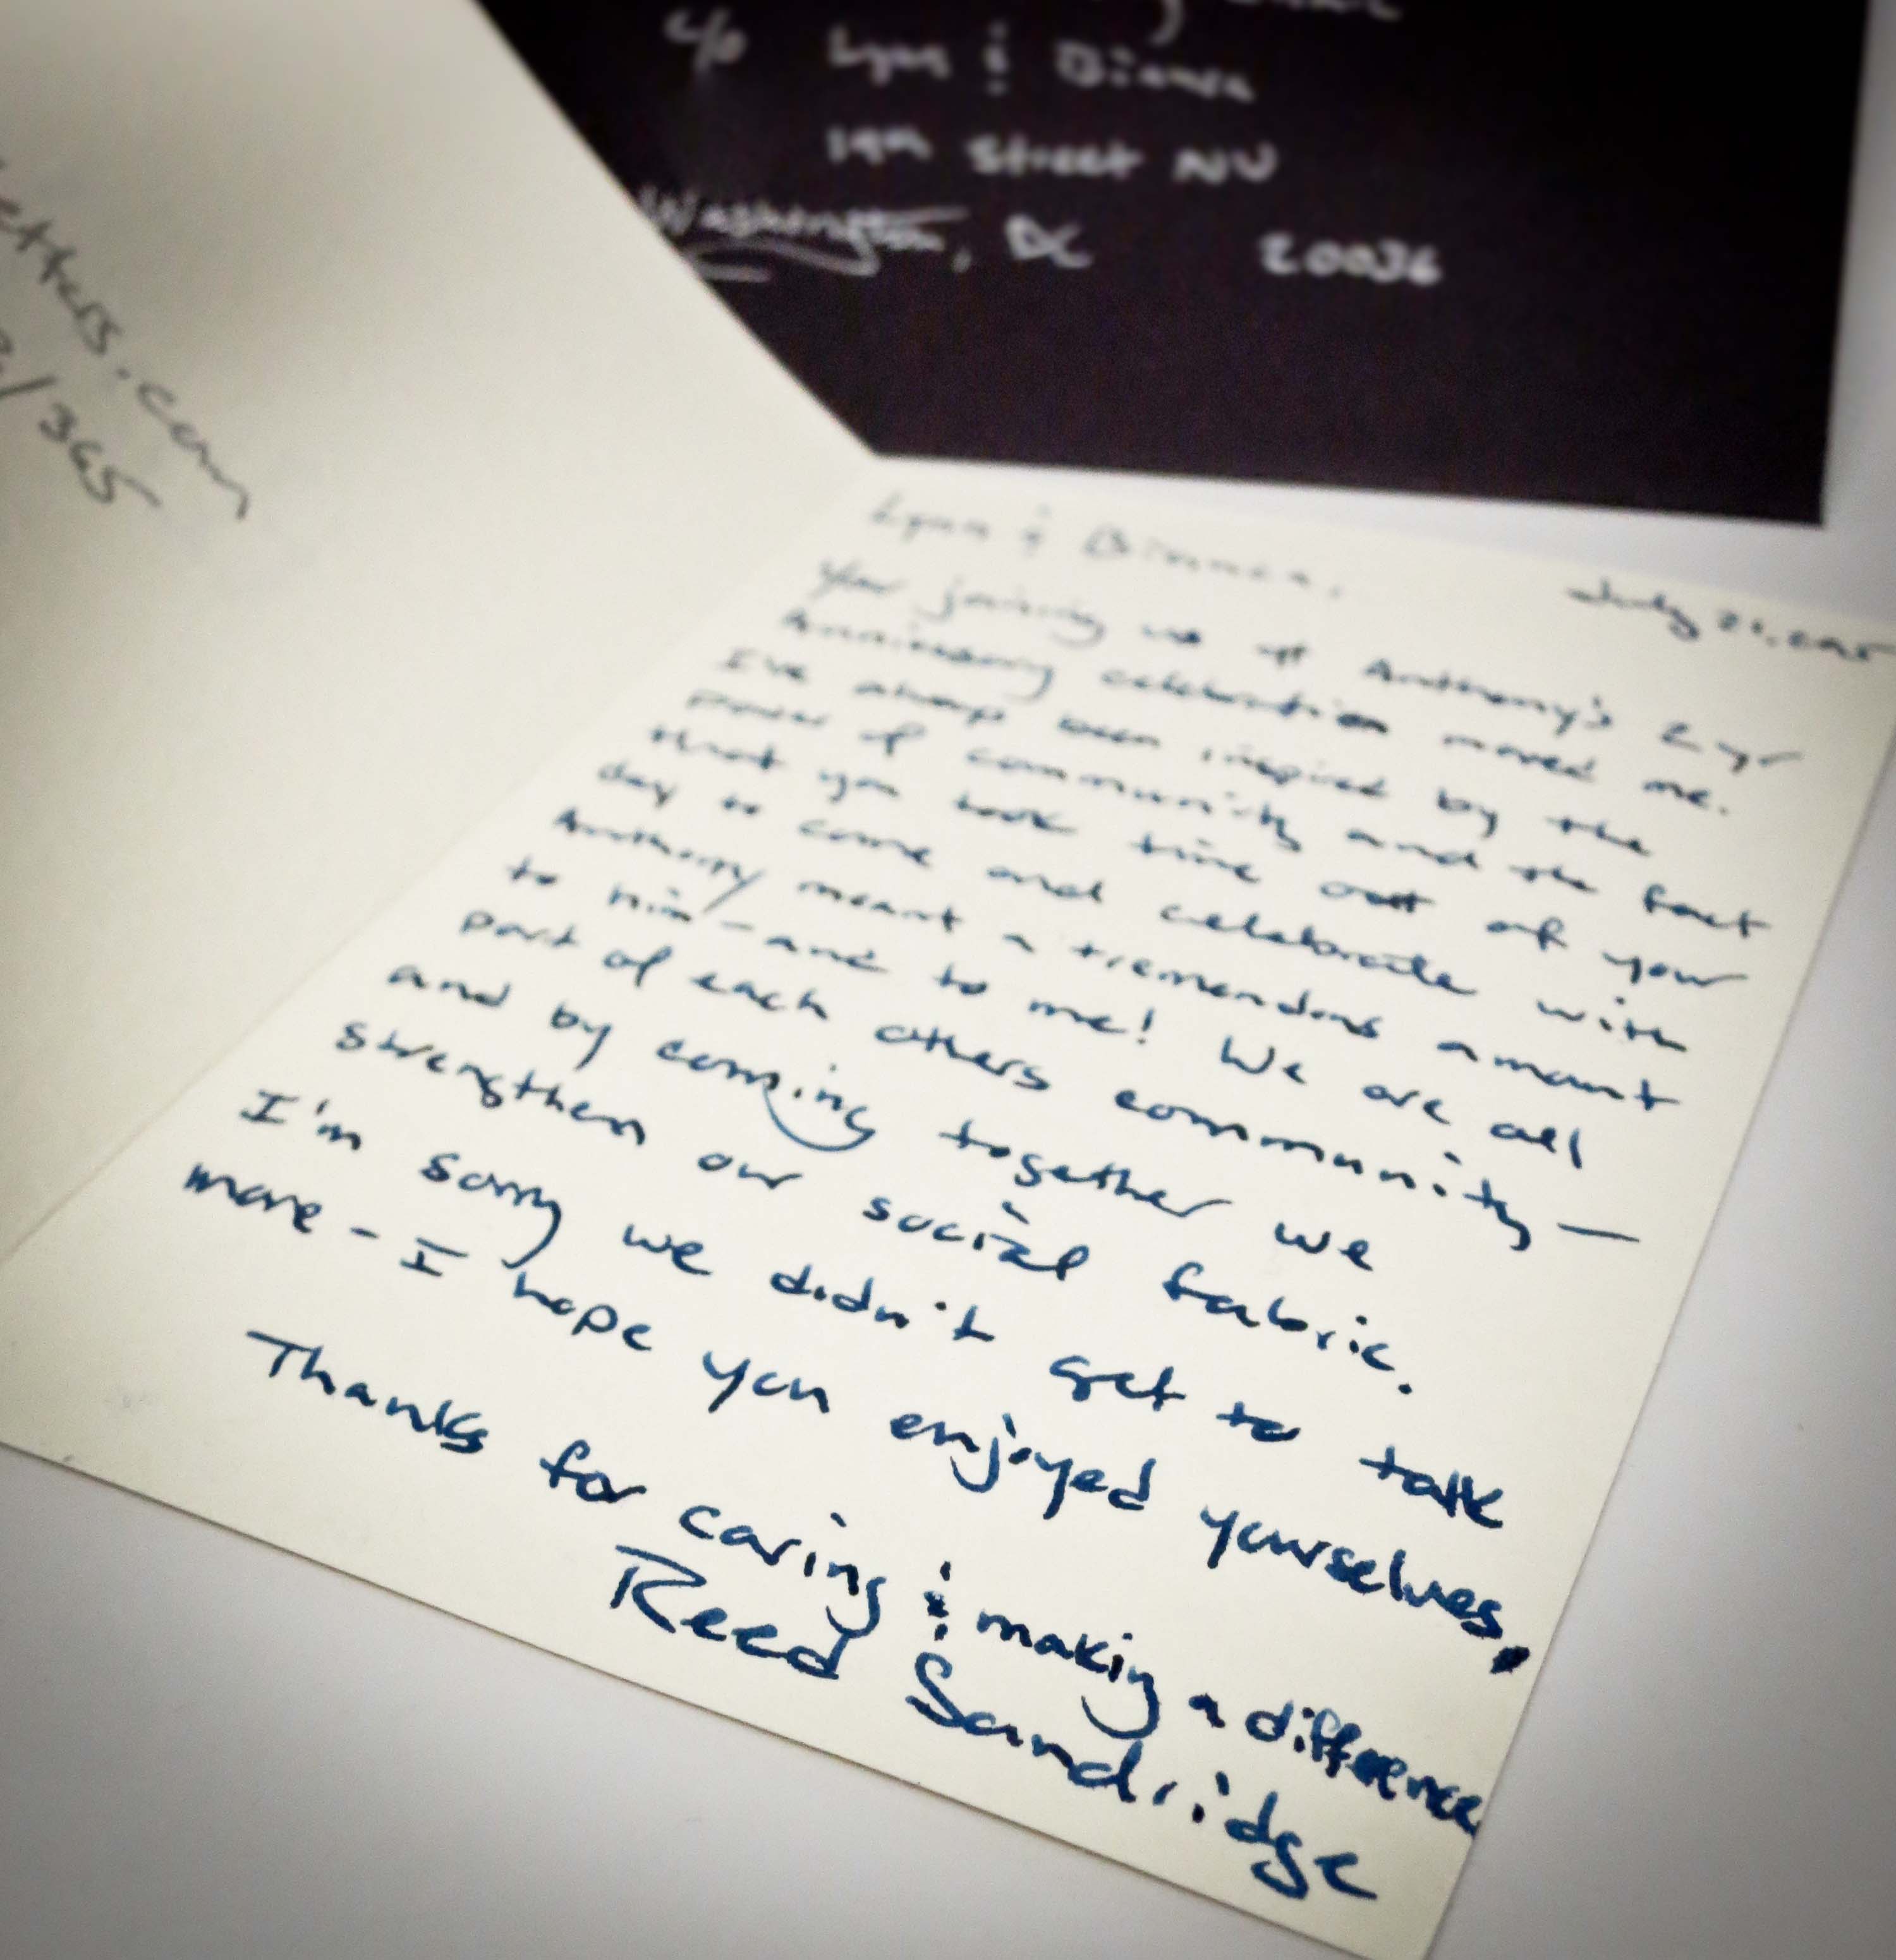 c/o Lynn & Bianca
19th Street NW
Washington, DC 20036
etters.com
/365
July 21, 2015
Lynn & Bianca,
Your joining us at Anthony's 2 yr
Anniversary celebration moved me.
I've always been inspired by the
power of community and the fact
that you took time out of your
day to come and celebrate with
Anthony meant a tremendous amount
to him - and to me! We are all
part of each others community —
and by coming together we
strengthen our social fabric.
I'm sorry we didn't get to talk
more - I hope you enjoyed yourselves,
Thanks for caring & making a difference
Reed Sandridge